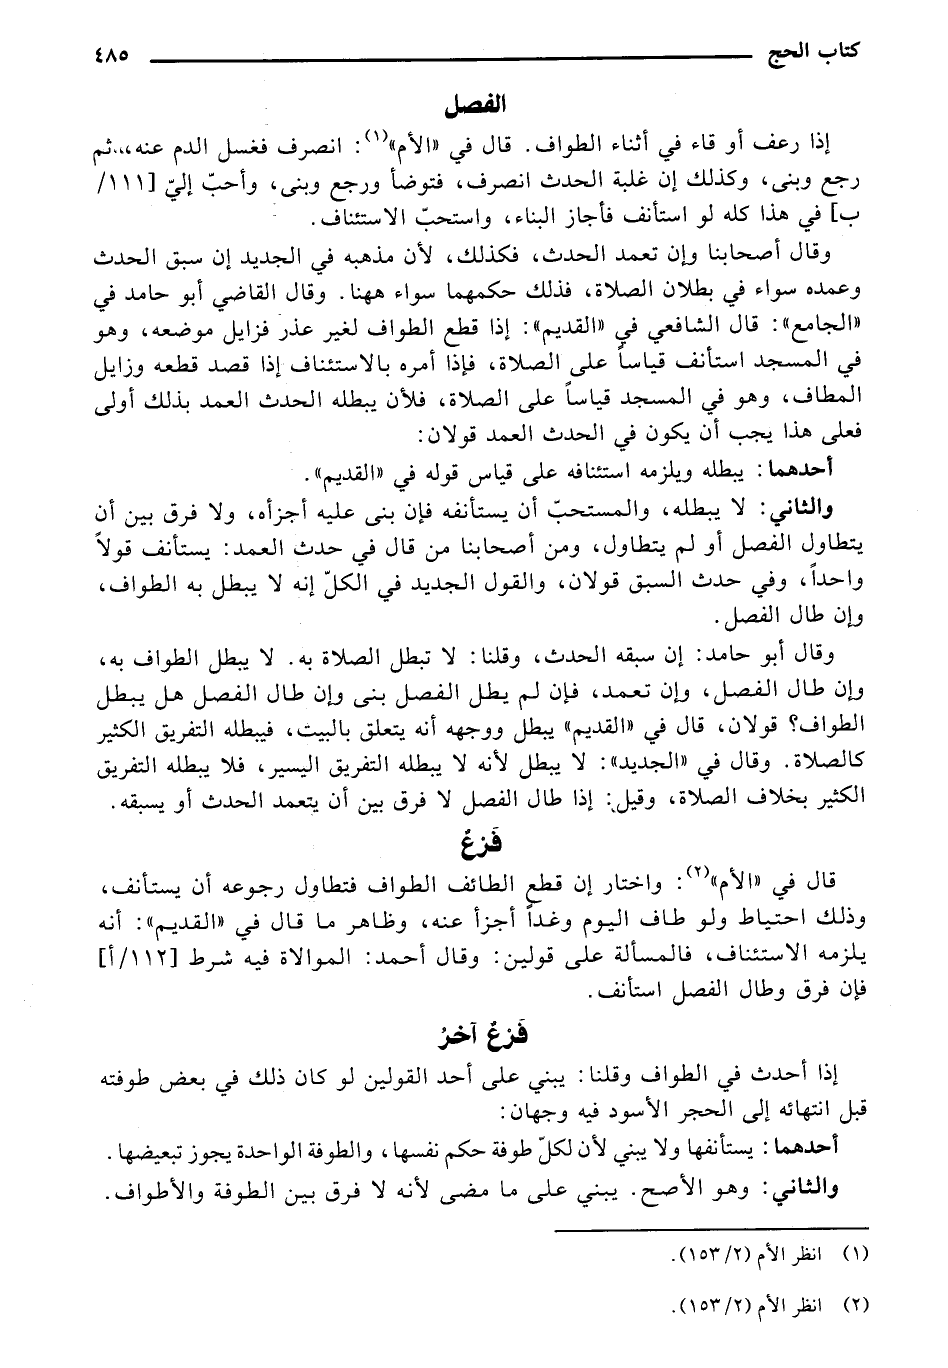 كتاب الحج ٤٨٥
الفصل
إذا رعف أو قاء في أثناء الطواف. قال في «الأم»(١): انصرف فغسل الدم عنه،..ثم
رجع وبنى، وكذلك إن غلبة الحدث انصرف، فتوضأ ورجع وبنى، وأحبّ إليّ [١١١/
ب] في هذا كله لو استأنف فأجاز البناء، واستحبّ الاستئناف.
وقال أصحابنا وإن تعمد الحدث، فكذلك، لأن مذهبه في الجديد إن سبق الحدث
وعمده سواء في بطلان الصلاة، فذلك حكمهما سواء ههنا. وقال القاضي أبو حامد في
«الجامع»: قال الشافعي في «القديم»: إذا قطع الطواف لغير عذر فزايل موضعه، وهو
في المسجد استأنف قياساً على الصلاة، فإذا أمره بالاستئناف إذا قصد قطعه وزايل
المطاف، وهو في المسجد قياساً على الصلاة، فلأن يبطله الحدث العمد بذلك أولى
فعلى هذا يجب أن يكون في الحدث العمد قولان:
أحدهما: يبطله ويلزمه استئنافه على قياس قوله في «القديم».
والثاني: لا يبطله، والمستحبّ أن يستأنفه فإن بنى عليه أجزأه، ولا فرق بين أن
يتطاول الفصل أو لم يتطاول، ومن أصحابنا من قال في حدث العمد: يستأنف قولاً
واحداً، وفي حدث السبق قولان، والقول الجديد في الكلّ إنه لا يبطل به الطواف،
وإن طال الفصل.
وقال أبو حامد: إن سبقه الحدث، وقلنا: لا تبطل الصلاة به. لا يبطل الطواف به،
وإن طال الفصل، وإن تعمد، فإن لم يطل الفصل بنى وإن طال الفصل هل يبطل
الطواف؟ قولان، قال في «القديم» يبطل ووجهه أنه يتعلق بالبيت، فيبطله التفريق الكثير
كالصلاة. وقال في «الجديد»: لا يبطل لأنه لا يبطله التفريق اليسير، فلا يبطله التفريق
الكثير بخلاف الصلاة، وقيل: إذا طال الفصل لا فرق بين أن يتعمد الحدث أو يسبقه.
فَرْعٌ
قال في «الأم»(٢): واختار إن قطع الطائف الطواف فتطاول رجوعه أن يستأنف،
وذلك احتياط ولو طاف اليوم وغداً أجزأ عنه، وظاهر ما قال في «القديم»: أنه
يلزمه الاستئناف، فالمسألة على قولين: وقال أحمد: الموالاة فيه شرط [١١٢/أ]
فإن فرق وطال الفصل استأنف.
فَرْعٌ آخرُ
إذا أحدث في الطواف وقلنا: يبني على أحد القولين لو كان ذلك في بعض طوفته
قبل انتهائه إلى الحجر الأسود فيه وجهان:
أحدهما: يستأنفها ولا يبني لأن لكلّ طوفة حكم نفسها، والطوفة الواحدة يجوز تبعيضها.
والثاني: وهو الأصح. يبني على ما مضى لأنه لا فرق بين الطوفة والأطواف.
(١) انظر الأم (١٥٣/٢).
(٢) انظر الأم (١٥٣/٢).